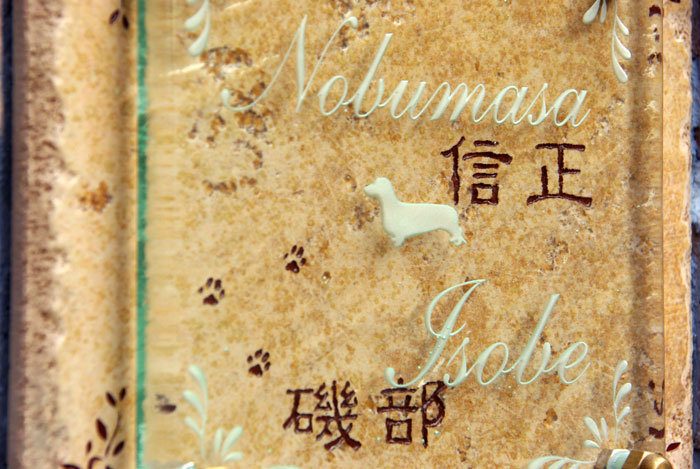 Nobumasa
信正
Isobe
磯部